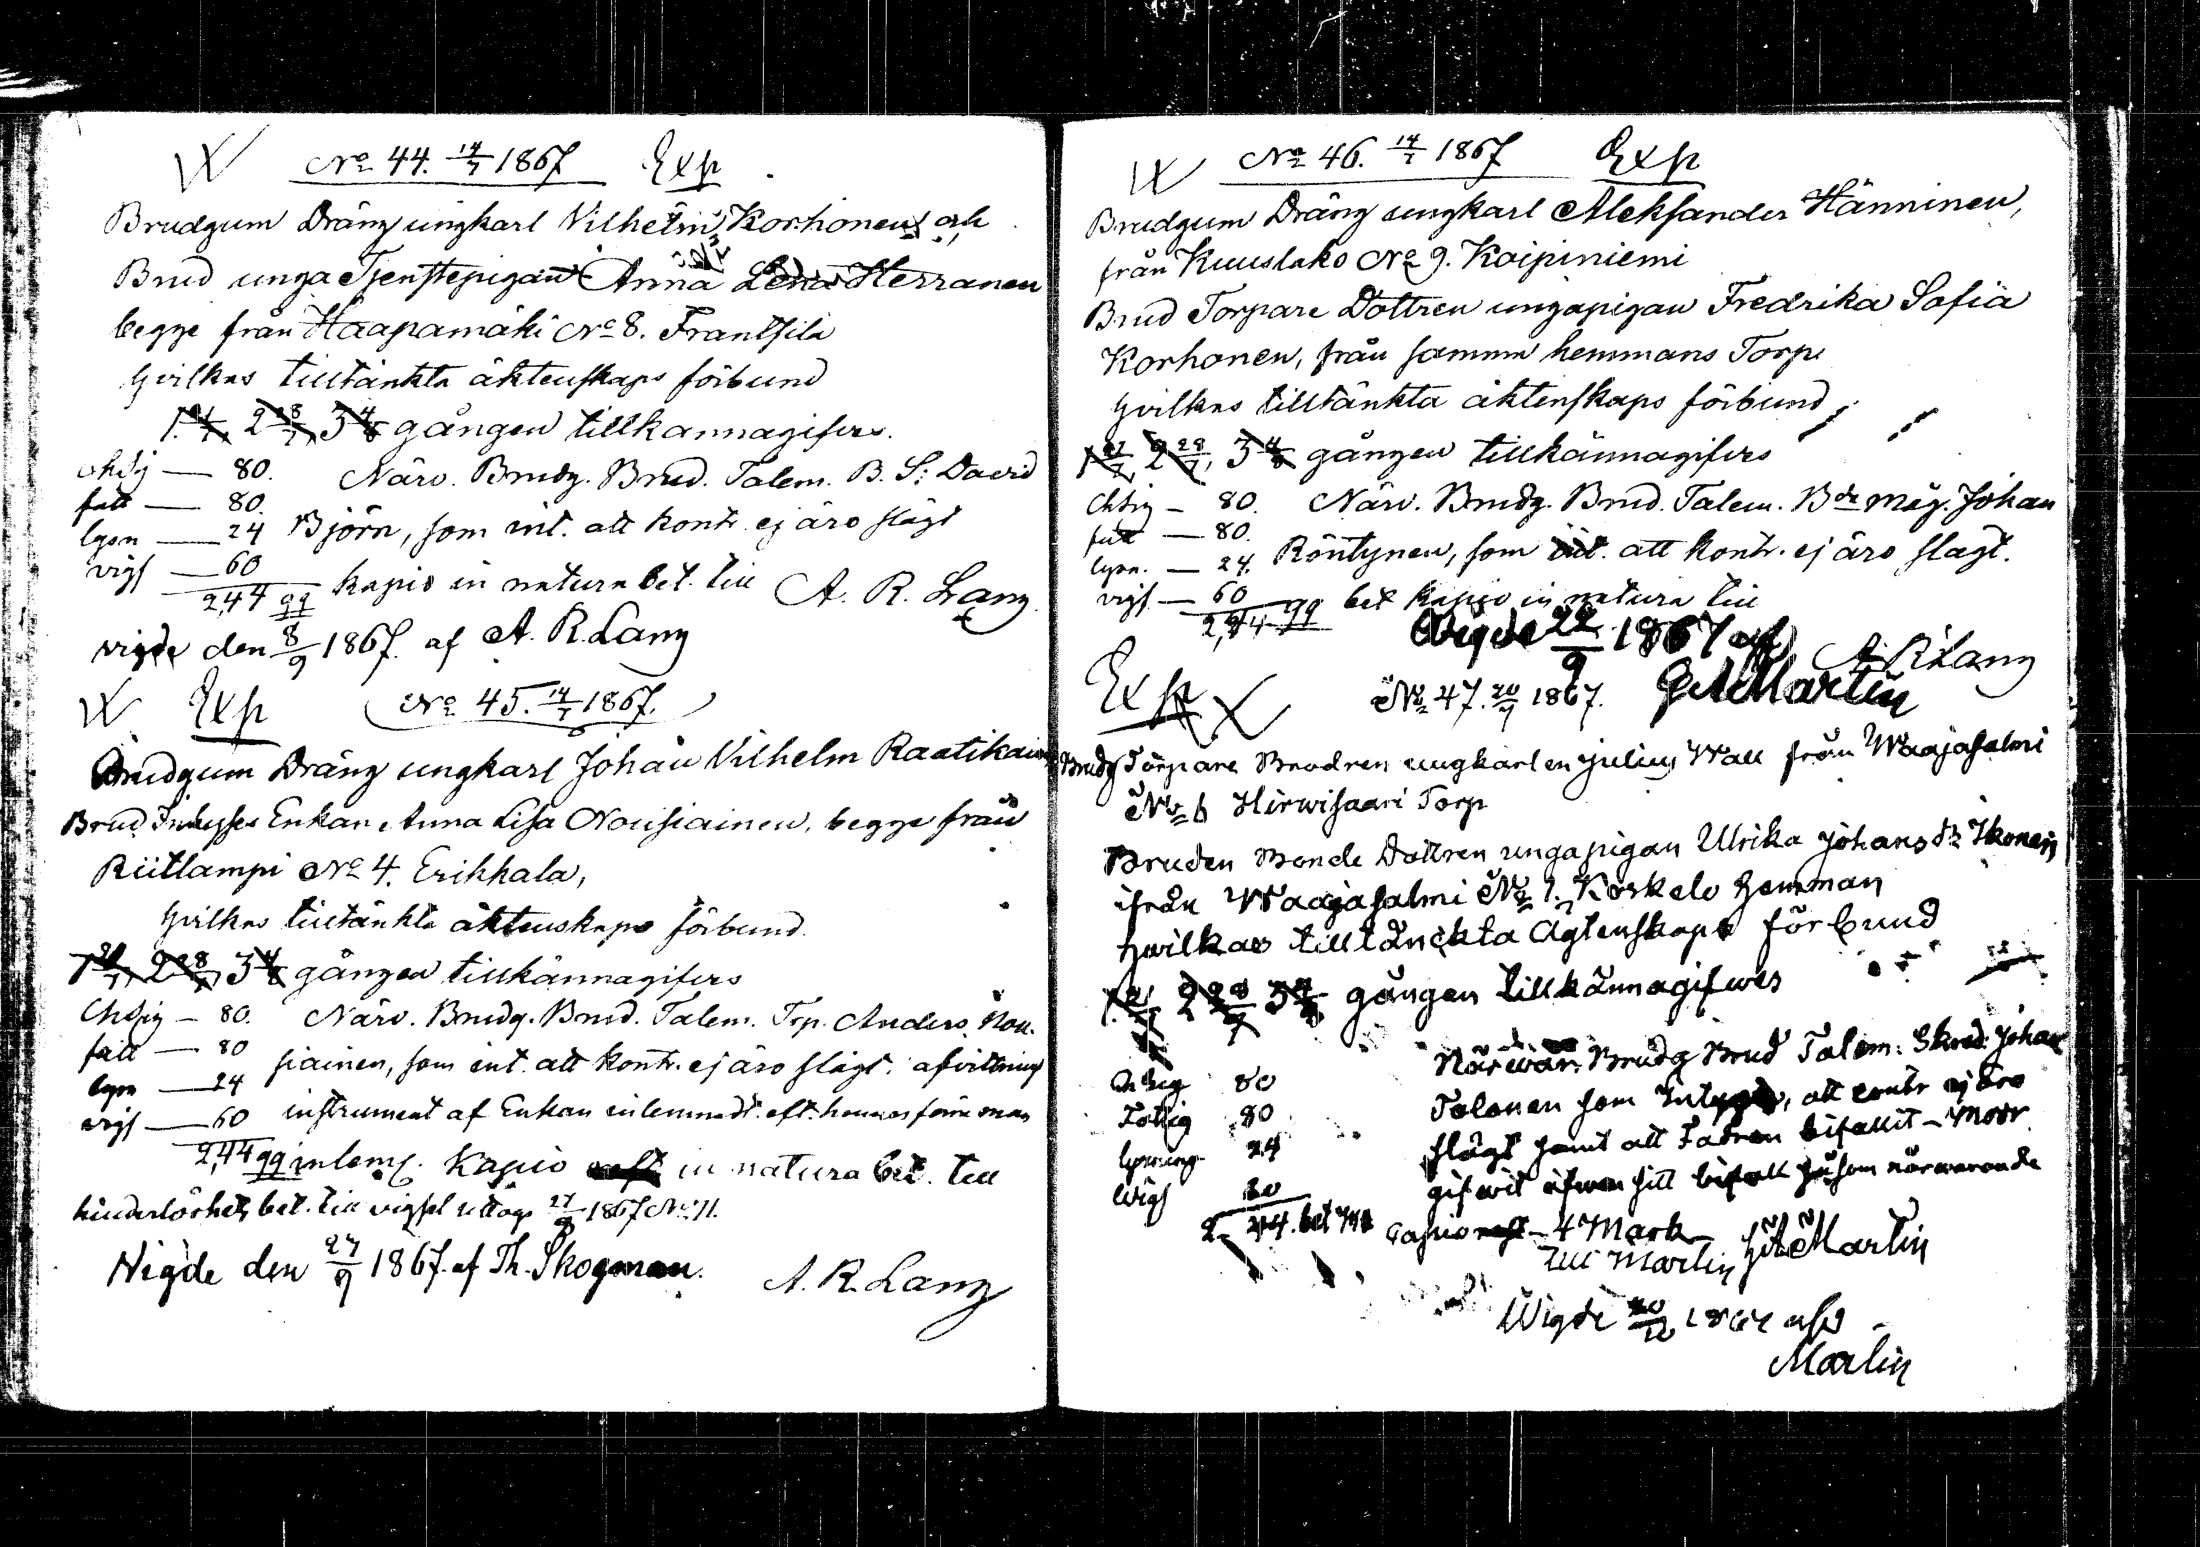 No 44. 14/7 1867 Exp
Brudgum Dräng ungkarl Vilhelm Korhonen och
Brud unga Tjenstepigan Anna Lena Herranen
begge från Haapamäki No 8. Frantsila
hvilkas tilltänkta äktenskaps förbund
1. 21/7, 2 28/7, 3 4/8 gången tillkannagifves.
chsig — 80. Närv. Brudg. Brud. Talem. B. S: David
fatt — 80.
lysn — 24 Björn, som int. att kontr. ej äro slägt
vigs — 60
2,44 99 kapio in natura bet. till A. R. Lang
vigde den 8/9 1867. af A. R. Lang
Exp No 45. 14/7 1867.
Brudgum Dräng ungkarl Johan Vilhelm Raatikain
Brud Inhyses Enkan Anna Lisa Nousiainen, begge från
Riitlampi No 4. Erikkala,
hvilkas tilltänkta äktenskaps förbund
1 21/7, 2 28/7, 3 4/8 gången tillkännagifves
Chsig — 80. Närv. Brudg. Brud. Talem. Trp. Anders Nou-
fatt — 80 siainen, som int. att kontr. ej äro slägt. afvittring
lysn — 24
vigs — 60 instrument af Enkan inlemnadt eft. hennes förra man
2,44 99 inlemn. Kapio in natura bet. till
hinderlöshet, bet. till vigsel uttogs 27/9 1867 No 11.
Vigde den 27/9 1867. af Th. Skogman.
A. R. Lang
No 46. 14/7 1867 Exp
Brudgum Dräng ungkarl Aleksander Hänninen,
från Kuuslako No 9. Koipiniemi
Brud Torpare Dottren ungapigan Fredrika Sofia
Korhonen, från samma hemmans Torp
hvilkas tilltänkta äktenskaps förbund
1 21/7, 2 28/7, 3 4/8 gången tillkännagifves
Chsig — 80. Närv. Brudg. Brud. Talem. Bds måg. Johan
fatt — 80.
lysn. — 24. Röntynen, som int. att kontr. ej äro slägt.
vigs — 60
2,44 99 bet kapio in natura till
Vigde 22/9 1867 af A. R Lang
G A Martin
Exp No 47. 20/7 1867.
Brudg Torpare Brodren ungkarlen Julius Wall från Waajasalmi
No 6 Hirwisaari Torp
Bruden Bonde Dottren ungapigan Ulrika Johansdr Ikonen
ifrån Waajasalmi No 1. Koskelo hemman
hwilkas tilltänckta Agtenskaps förbund
1 21/7 2 28/7 3 4/8 gången tillkännagifwes
Närwar. Brudg Brud Talem: Skred. Johan
Chsig 80
Tolonen som Intygde, att contr ej äro
Fattig 80
slägt samt att Fadren bifallit - Moor
lysning 24
gifwit äfwen sitt bifall såsom närwarande
Wigs 60
2 - 44. bet Capio - 4 Mark
till Martin G A Martin
Wigde af
Martin